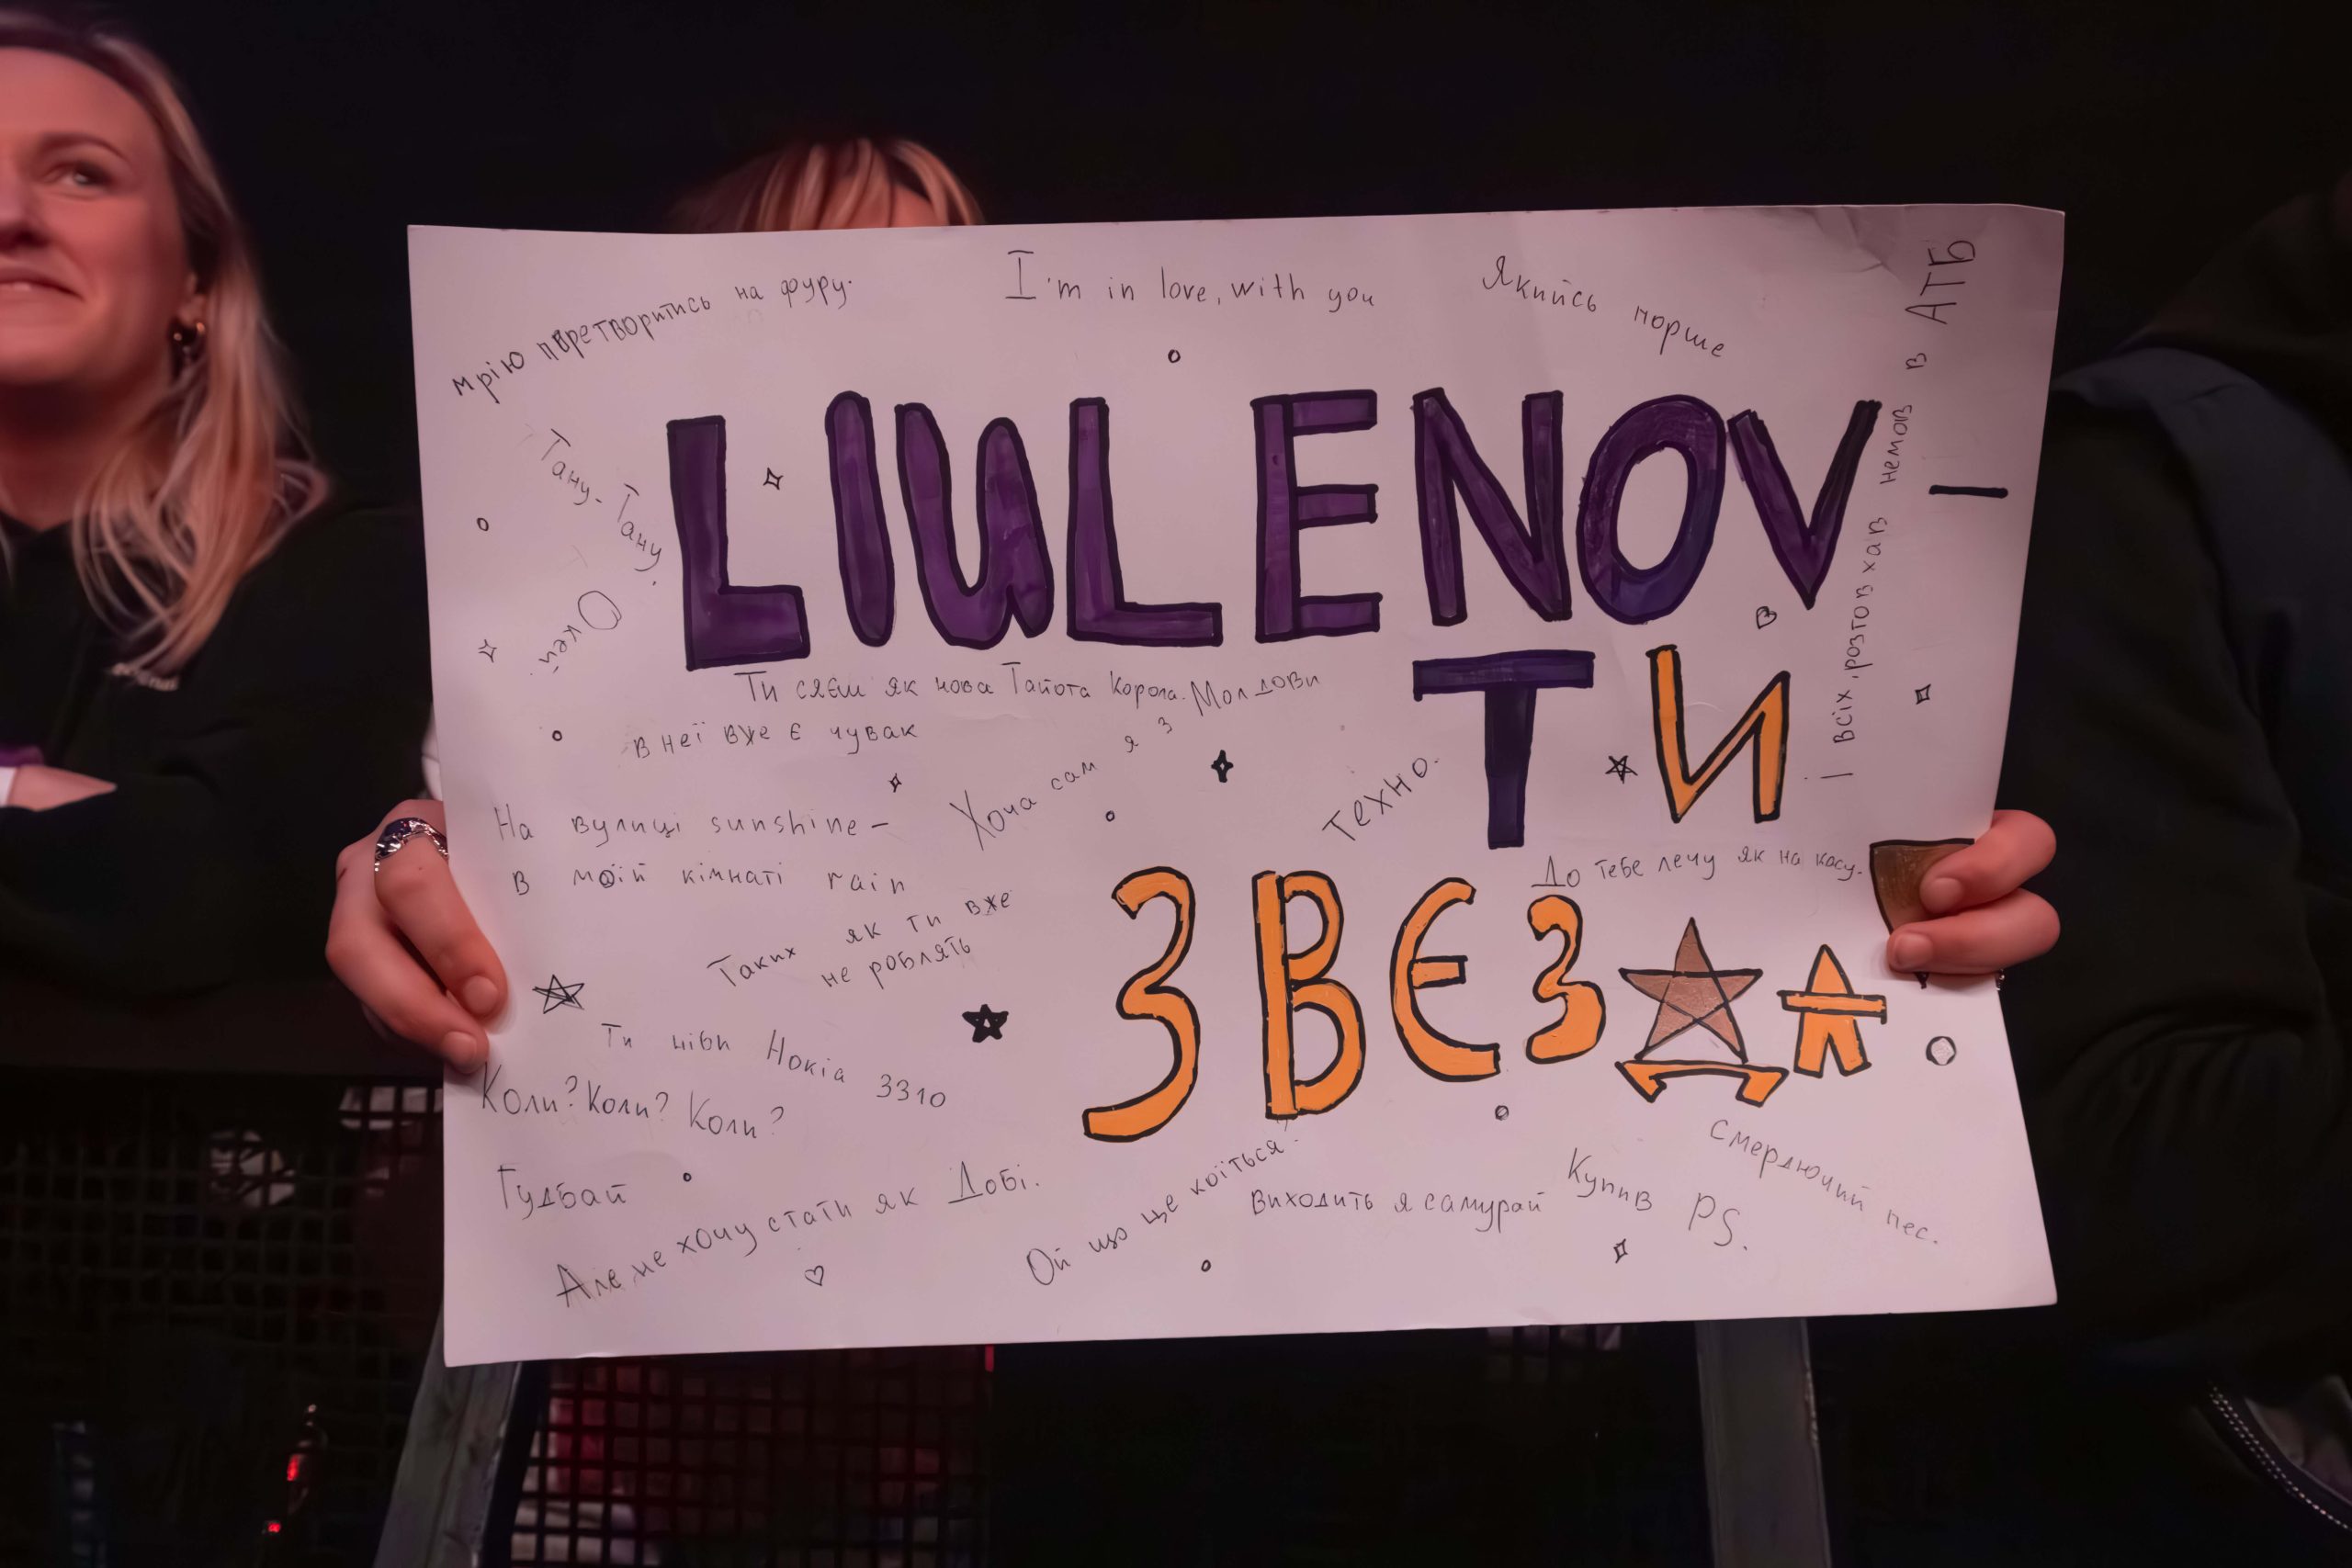 мрію перетворитись на фуру.
I'm in love, with you
Якийсь порше
І всіх розтовхав немов в АТБ
Тану-Тану.
Окей
LIULENOV —
Ти сяєш як нова Тайота Корола.
в неї вже є чувак
Хоча сам я з Молдови
ТИ
техно.
На вулиці sunshine —
в моїй кімнаті rain
До тебе лечу як на касу.
Таких як ти вже
не роблять
ЗВЄЗДА
Ти ніби Нокіа 3310
Коли? Коли? Коли?
Гудбай
Але не хочу стати як Добі.
Ой що це коїться
Виходить я самурай
Купив PS.
смердючий пес.